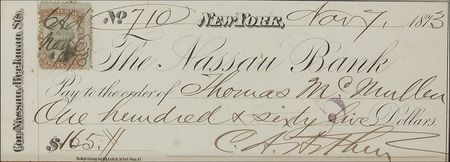 No. 710 New-York, Nov 7, 1873
The Nassau Bank
Pay to the order of Thomas McMullen
One hundred & sixty five Dollars.
$165.
C. A. Arthur
Cor. Nassau & Beekman Sts.